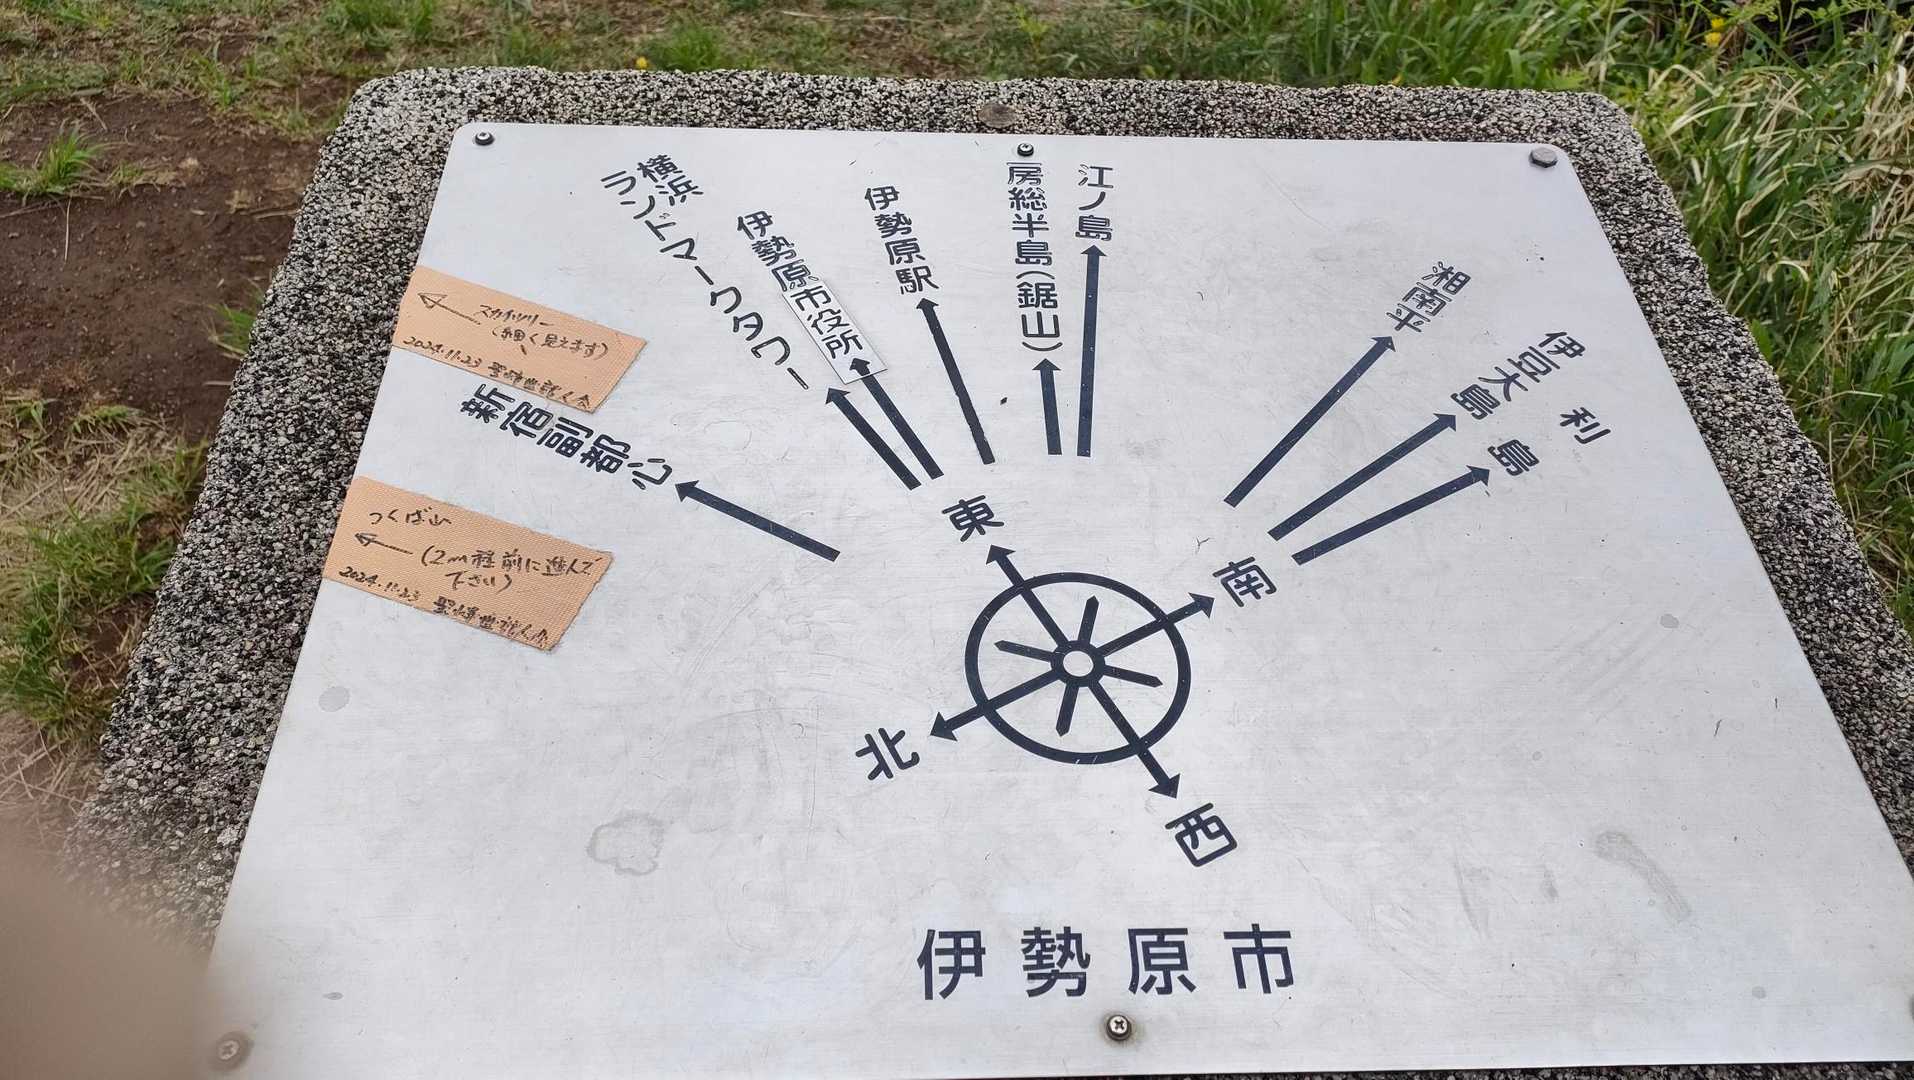 横浜
ランドマークタワー
伊勢原市役所
伊勢原駅
房総半島(鋸山)
江ノ島
湘南平
伊豆大島
利島
スカイツリー
(細く見えます)
2024.11.23
新宿副都心
つくば山
(2m程前に進んで
下さい)
2024.11.23
東
南
北
西
伊勢原市